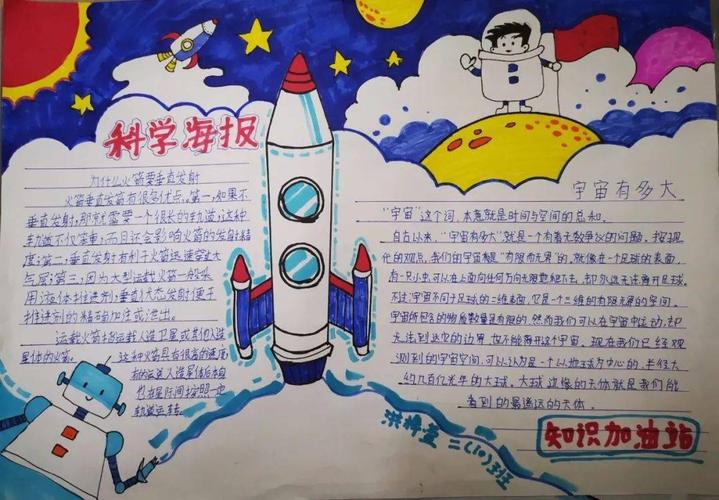 科学海报
为什么火箭要垂直发射
火箭垂直发射有很多优点。第一,如果不
垂直发射,那就需要一个很长的轨道,这种
轨道不仅笨重,而且还会影响火箭的发射精
度;第二,垂直发射有利于火箭迅速穿过大
气层;第三,因为大型运载火箭一般采
用液体推进剂,垂直状态发射便于
推进剂的精确加注或泄出。
运载火箭指运载人造卫星或其他人造
星体的火箭。这种火箭具有很高的速度,
宇宙有多大
“宇宙”这个词,本意就是时间与空间的总和。
自古以来,“宇宙有多大”就是一个有着无数争议的问题。按现
代的观点,我们的宇宙就是“有限而无界”的,就像在一个足球的表面,
有一只小虫可以在上面向任何方向无限爬下去,却永远无法离开足球。
不过宇宙不同于足球的二维表面,它是一个三维的有限无界的空间。
宇宙所包含的物质数量是有限的,然而我们可以在宇宙中运动,却
无法到达它的边界,也不能离开这个宇宙。现在我们已经观
测到的宇宙空间,可以认为是一个以地球为中心的,半径大
约几百亿光年的大球。大球边缘的天体就是我们能
看到的最遥远的天体。
二(10)班
知识加油站